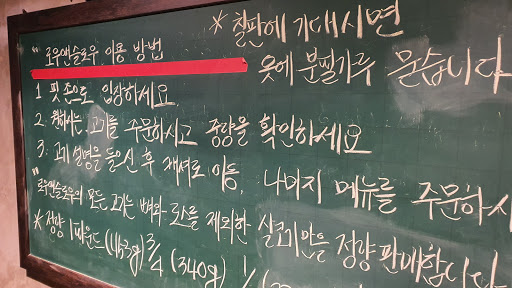 * 칠판에 기대시면
옷에 분필가루 묻습니다
" 로우앤슬로우 이용 방법
1. 핏 존으로 입장하세요
2. 원하시는 고기를 주문하시고 중량을 확인하세요
3. 고기 설명을 들으신 후 캐셔로 이동, 나머지 메뉴를 주문하시
"로우앤슬로우의 모든 고기는 뼈와 로스를 제외한 살코기만을 정량 판매합니다
* 정량 1파운드 (453g) 3/4 (340g) 1/